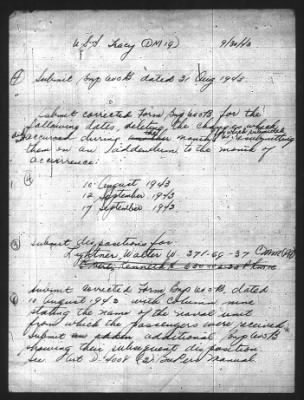 U.S.S. Tracy (DM 19) 9/30/43
1 Submit Bnp 600B dated 31 Aug 1943.
Submit corrected Form Bnp 600B for the
following dates, deleting the changes which
occurred during another month & resubmitting
them on an addendum to the month of
occurrence:
2
10 August 1943
12 September 1943
17 September 1943
3 Submit dispositions for
Lightner, Walter W 371-69-37
Submit corrected Form Bnp 600B, dated
10 August 1943 with column nine
stating the name of the naval unit
from which the passengers were received
Submit an additional Bnp 600B
showing their subsequent disposition
See Art D-4008 (2) BuPers Manual.